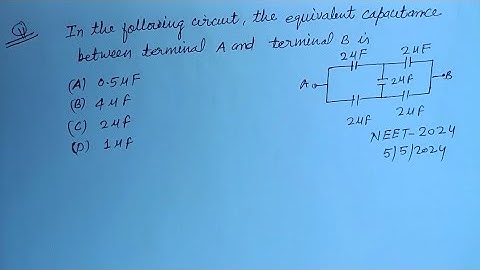 Q In the following circuit, the equivalent capacitance
between terminal A and terminal B is
(A) 0.5 μF
(B) 4 μF
(C) 2 μF
(D) 1 μF
2 μF 2 μF
A 2 μF B
2 μF 2 μF
NEET-2024
5/5/2024